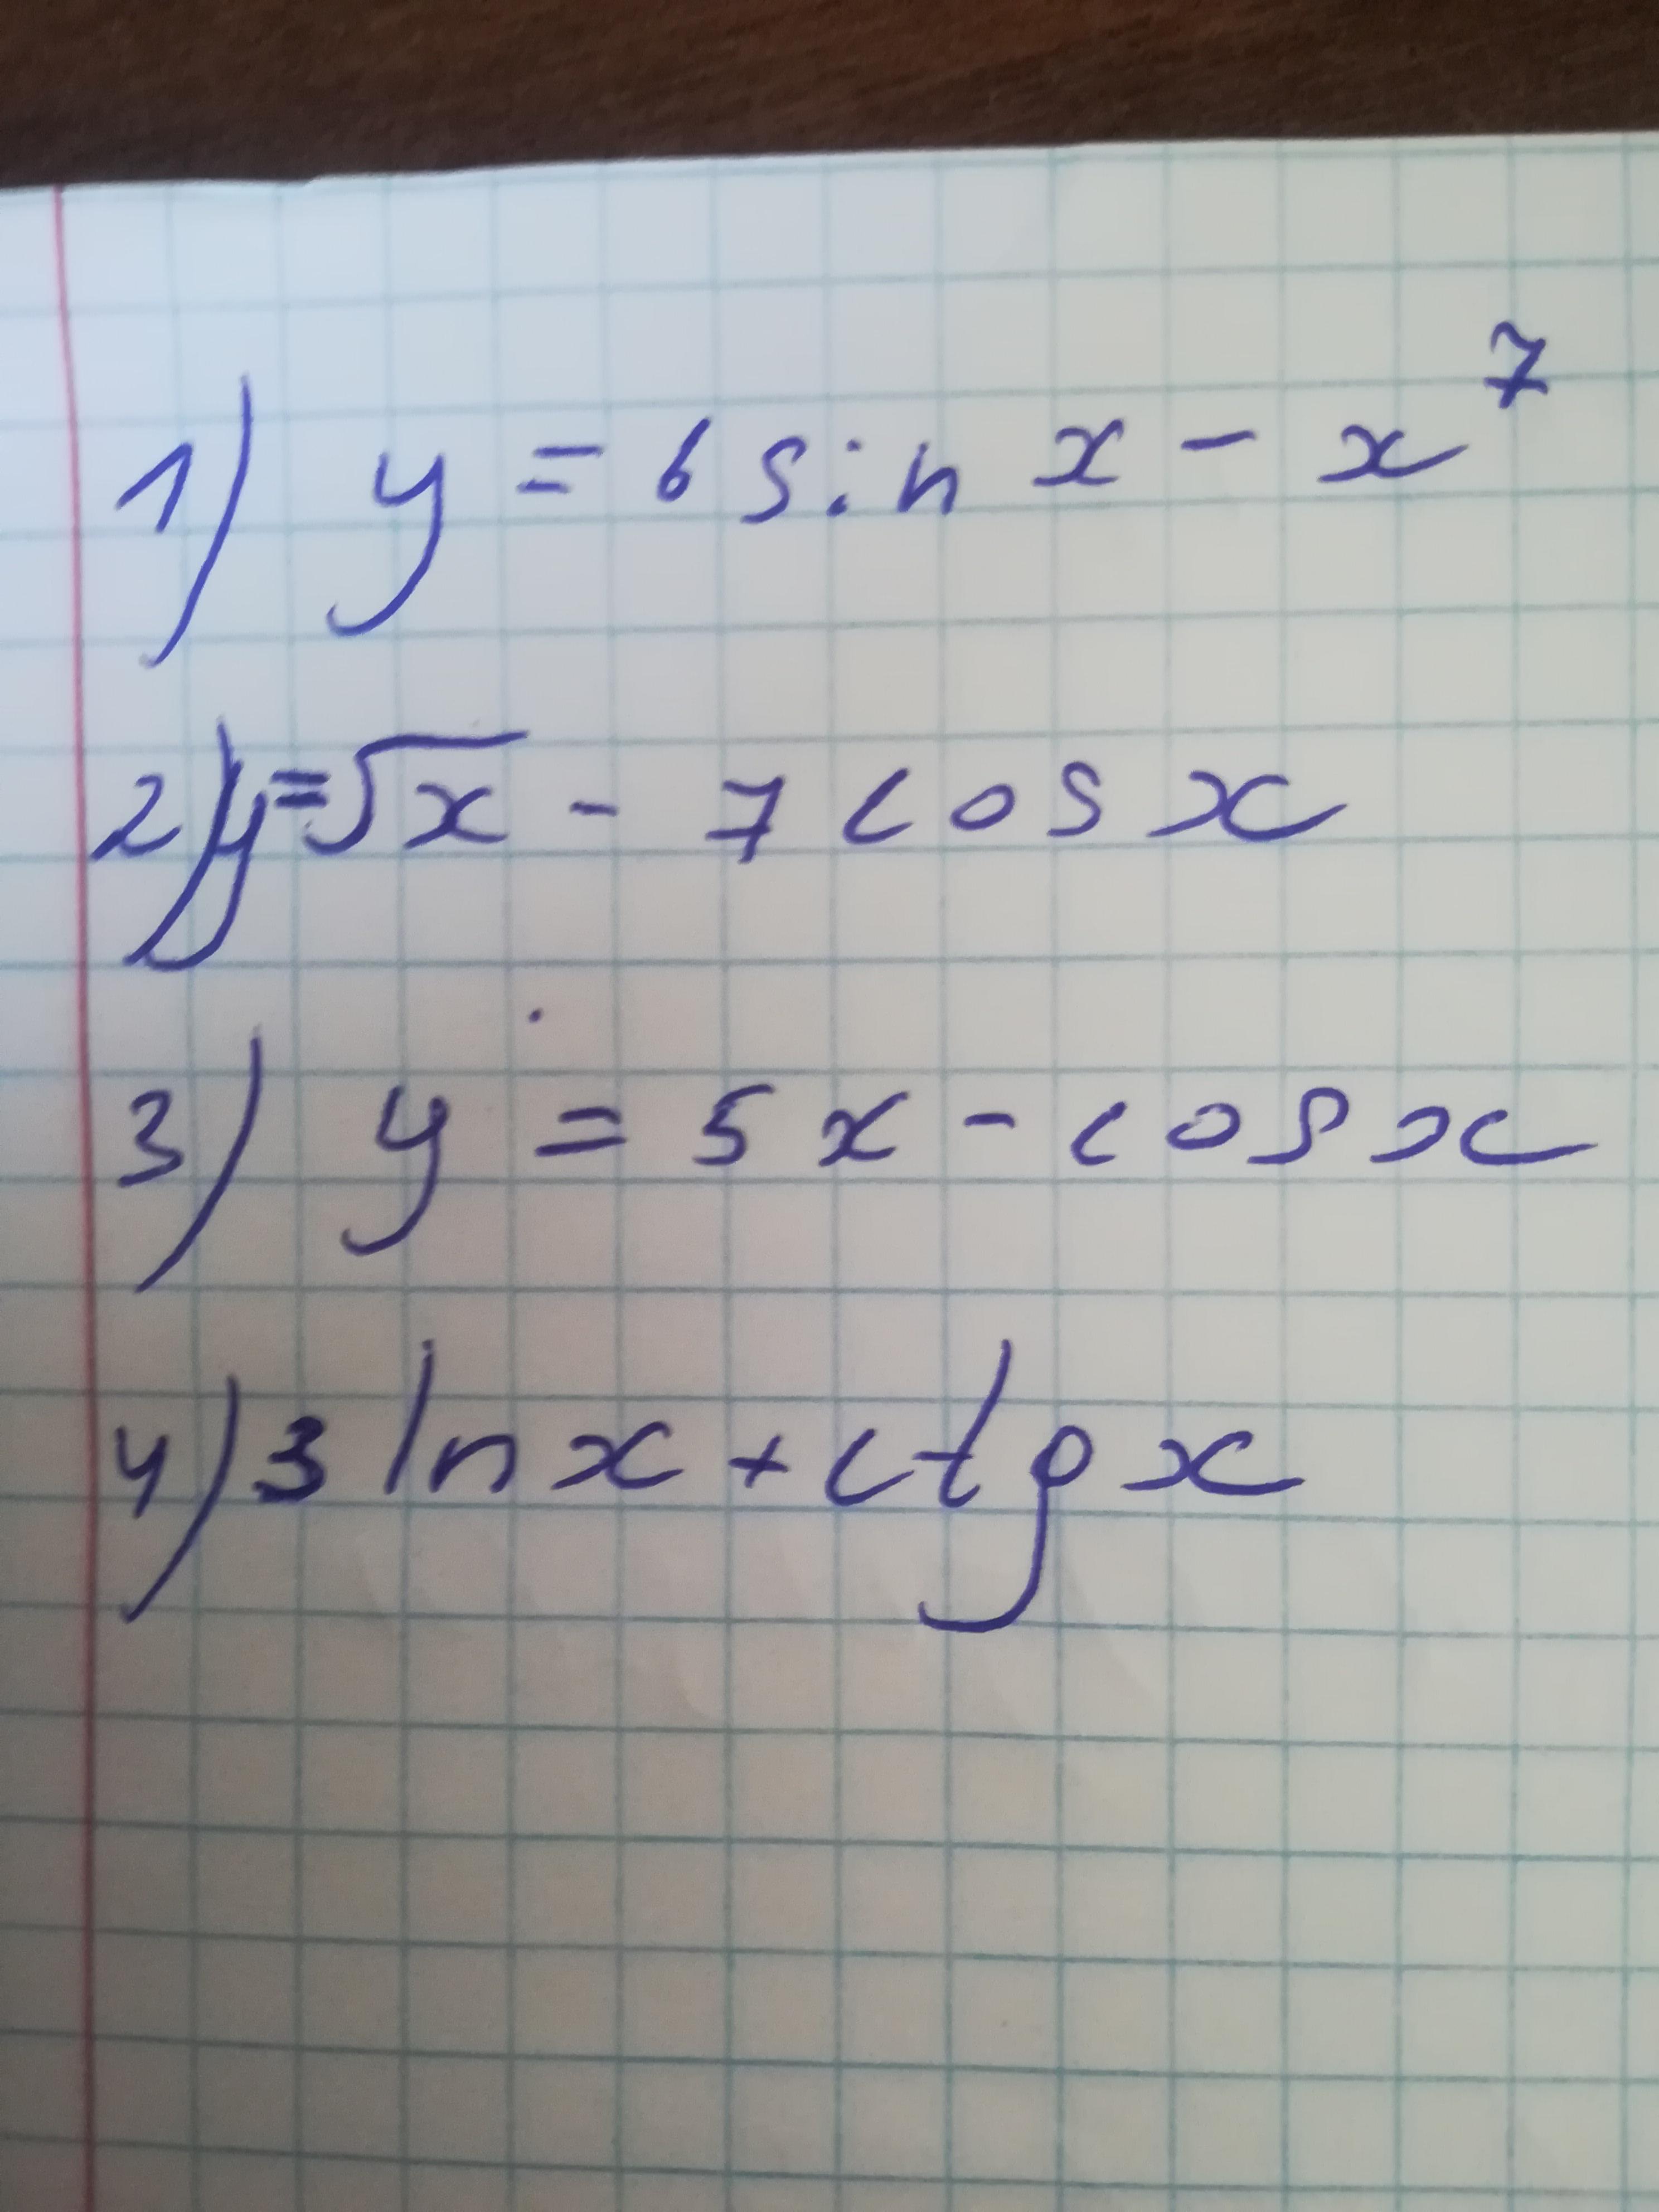 1) y = 6 sin x - x⁷
2) y = √x - 7 cos x
3) y = 5x - cos x
4) 3 ln x + ctg x